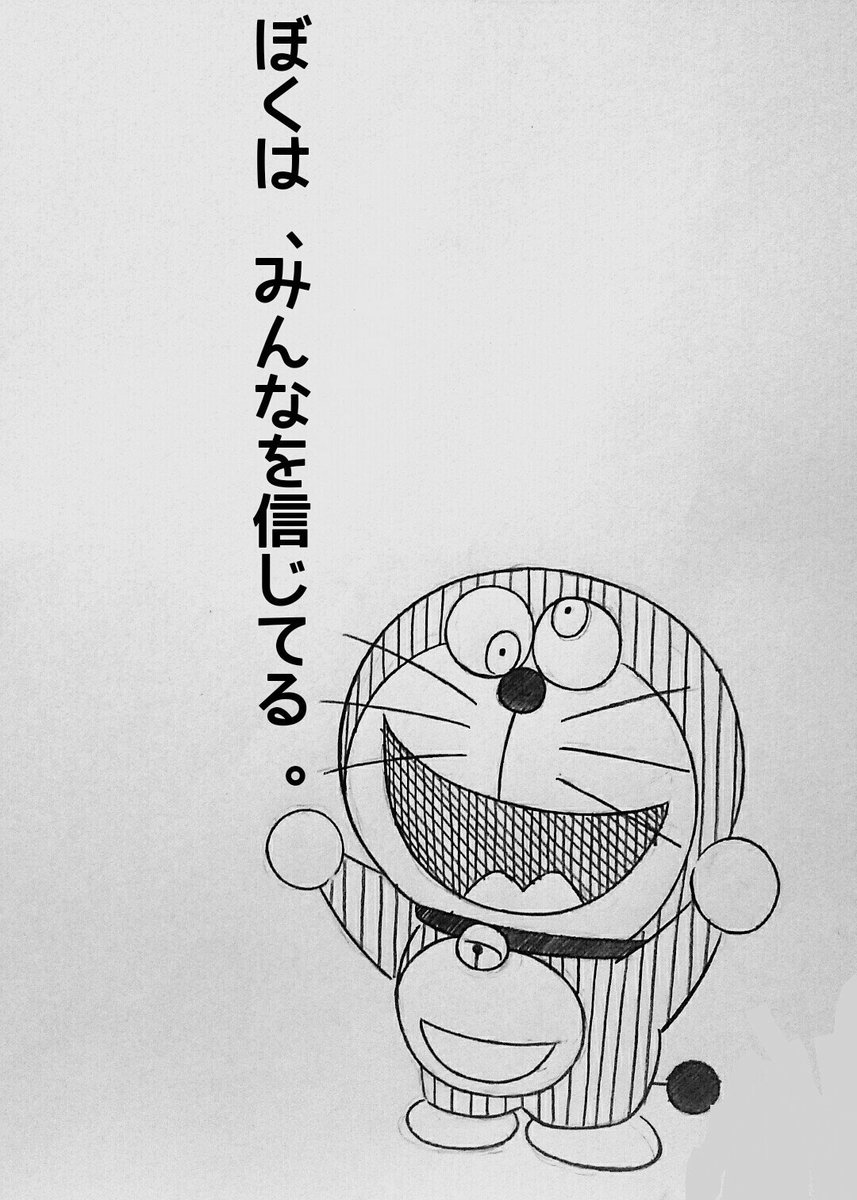 ぼくは、みんなを信じてる。